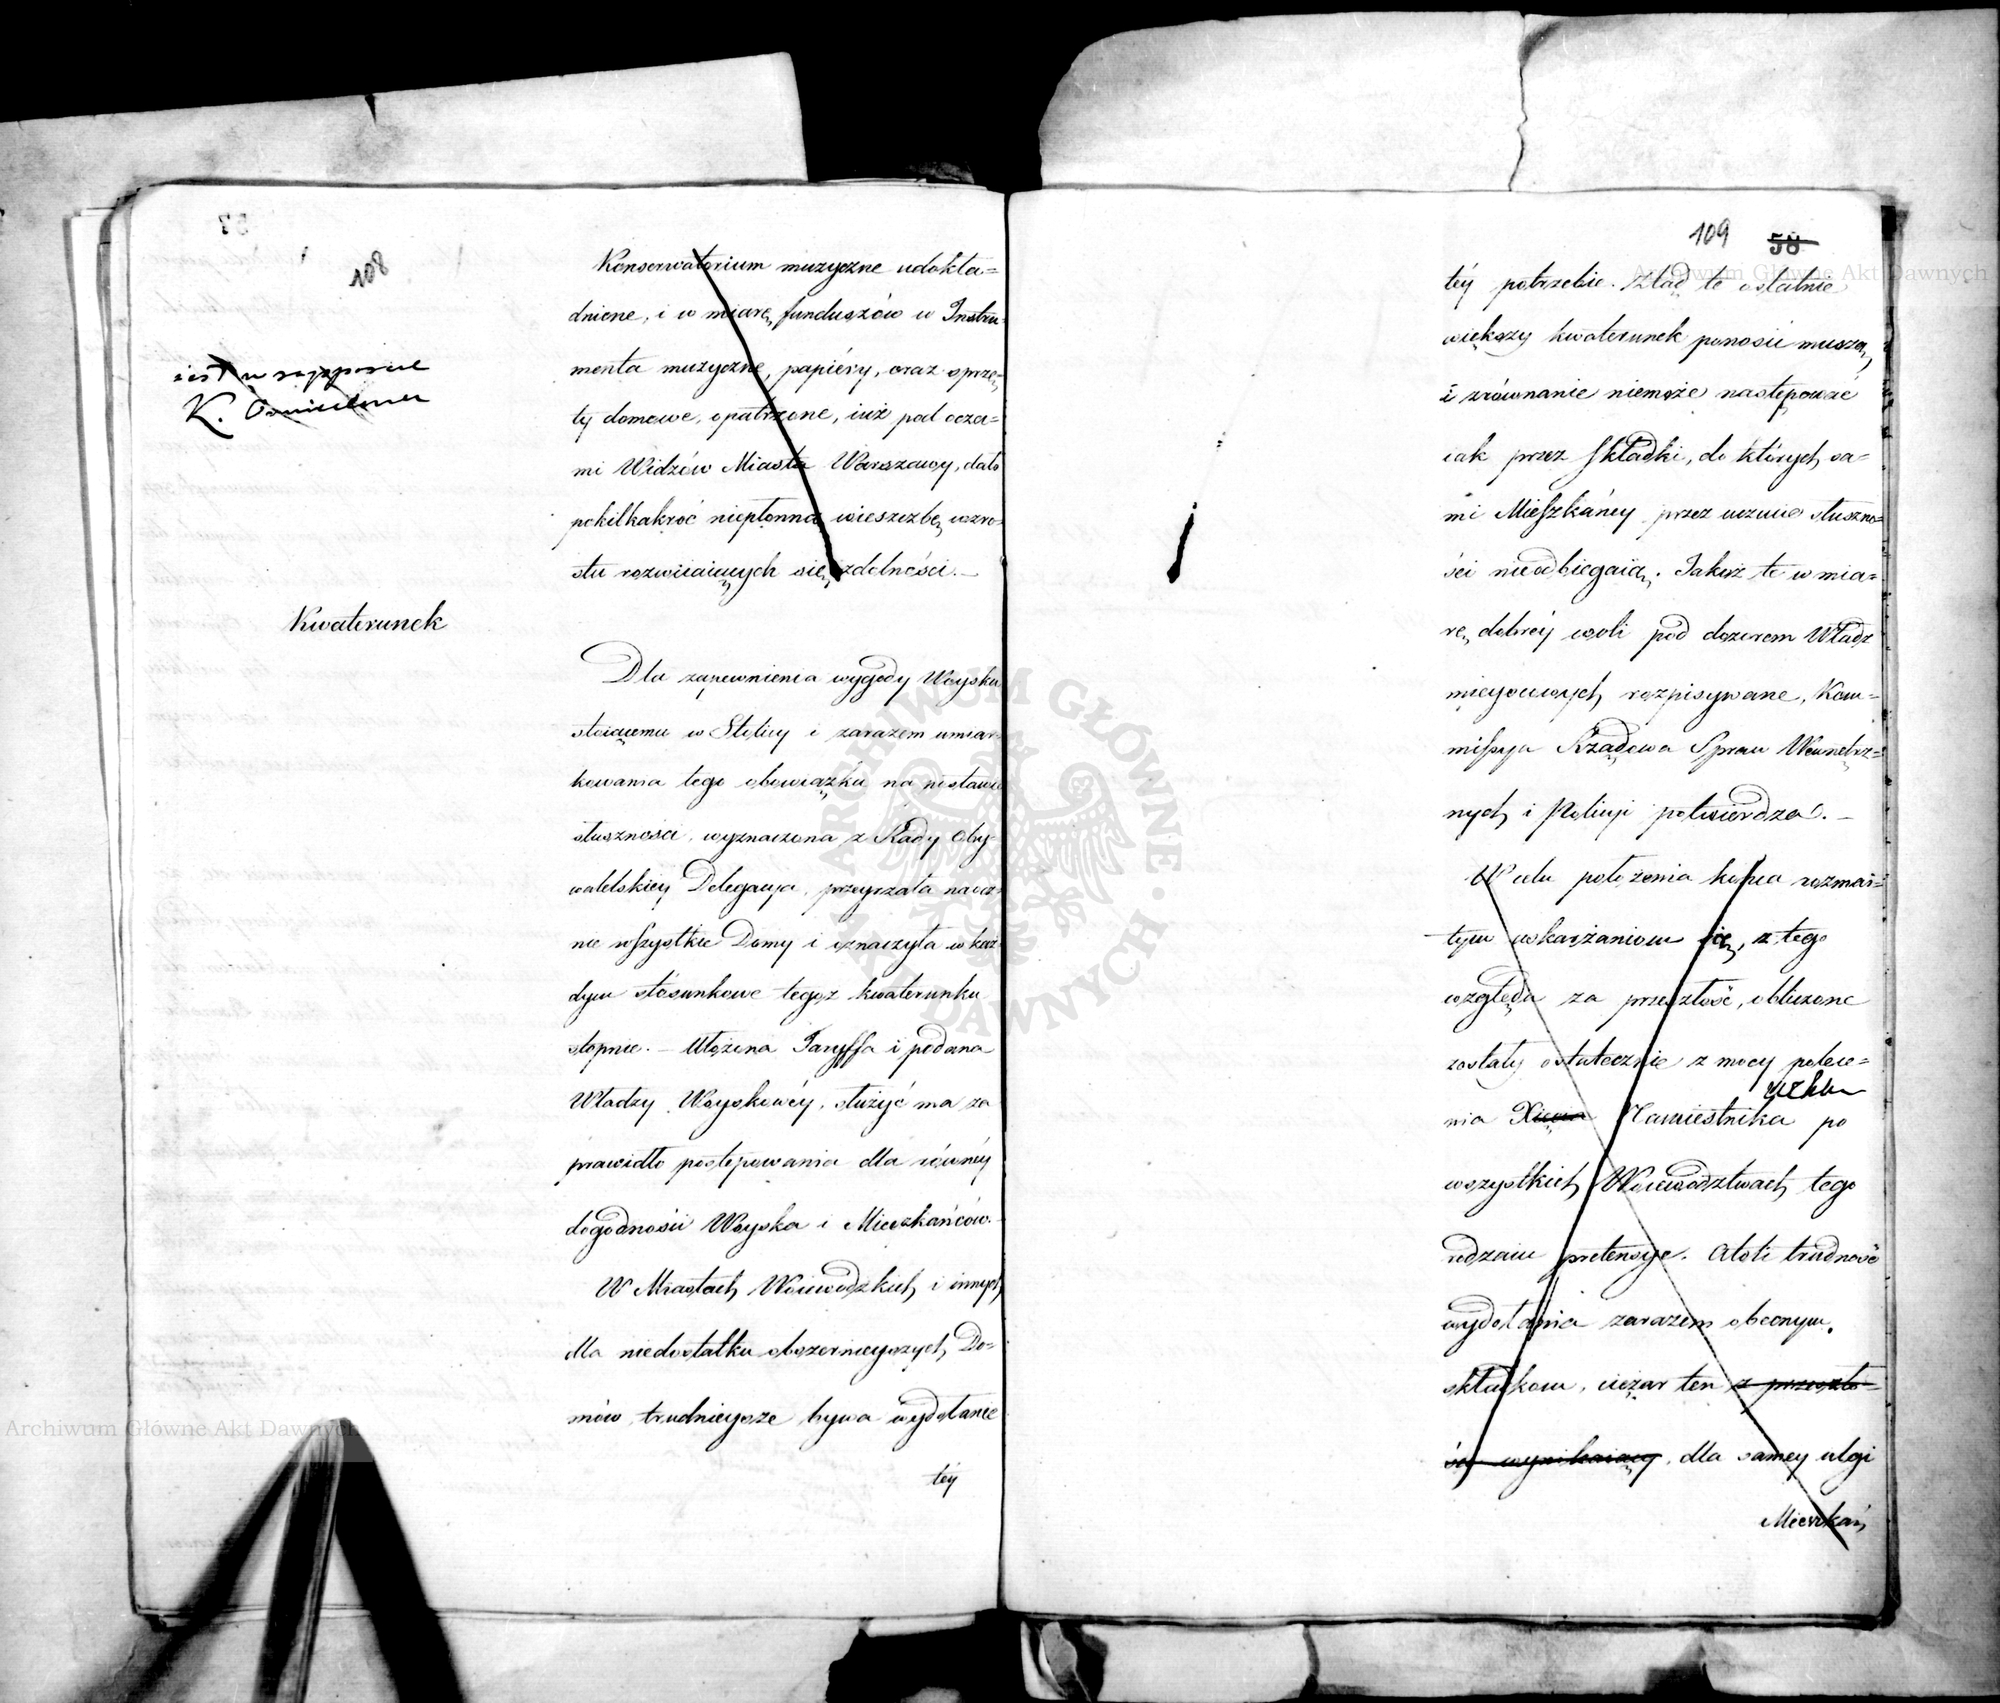 108
iest w rapporcie
K.
Konserwatorium muzyczne udokła=
dnione, i w miarę funduszów w Instru=
menta muzyczne, papiéry, oraz sprzę=
ty domowe, opatrzone, iuż pod ocza=
mi Widzów Miasta Warszawy, dało
pokilkakroć niepłonną wieszczbę wzro=
stu rozwiiaiących się zdolności. —
Kwaterunek
Dla zapewnienia wygody Woysku
stoiącemu w Stolicy i zarazem umiar=
kowania tego obowiązku na
słuszności, wyznaczona z Rady Oby=
watelskiey Delegacya, przeyrzała naocz=
nie wszystkie Domy i oznaczyła w każ=
dym stósunkowe tegoż kwaterunku
stopnie. — Ułożona Taryffa i podana
Władzy Woyskowéy, służyć ma za
prawidło postępowania dla równéy
dogodności Woyska i Mieszkańców.
W Miastach Woiewodzkich i innych
dla niedostatku obszernieyszych Do=
mów, trudnieysze bywa wydołanie
téy
109 58
téy potrzebie. Ztąd te ostatnie
większy kwaterunek ponosić muszą,
i zrównanie niemoże następować
iak przez składki, do których sa=
mi Mieszkańcy przez uczucie słuszno=
ści nieodbiegaią. Jakoż te w mia=
rę dobréy woli pod dozorem Władz
mieyscowych rozpisywane, Kom=
missya Rządowa Spraw Wewnętrz=
nych i Policyi potwierdza. —
W celu położenia końca rozmai=
tym uskarżaniom się, z tego
względu za przeszłość, obliczone
zostały ostatecznie z mocy polece=
nia Xięcia Namiestnika po
wszystkich Woiewództwach tego
rodzaiu pretensye. Atoli trudność
wydołania zarazem obecnym
składkom, ciężar ten z przeszło=
ści wynikaiący, dla samey ulgi
Mieszkań
Archiwum Główne Akt Dawnych
Archiwum Główne Akt Dawnych
ARCHIWUM GŁÓWNE AKT DAWNYCH